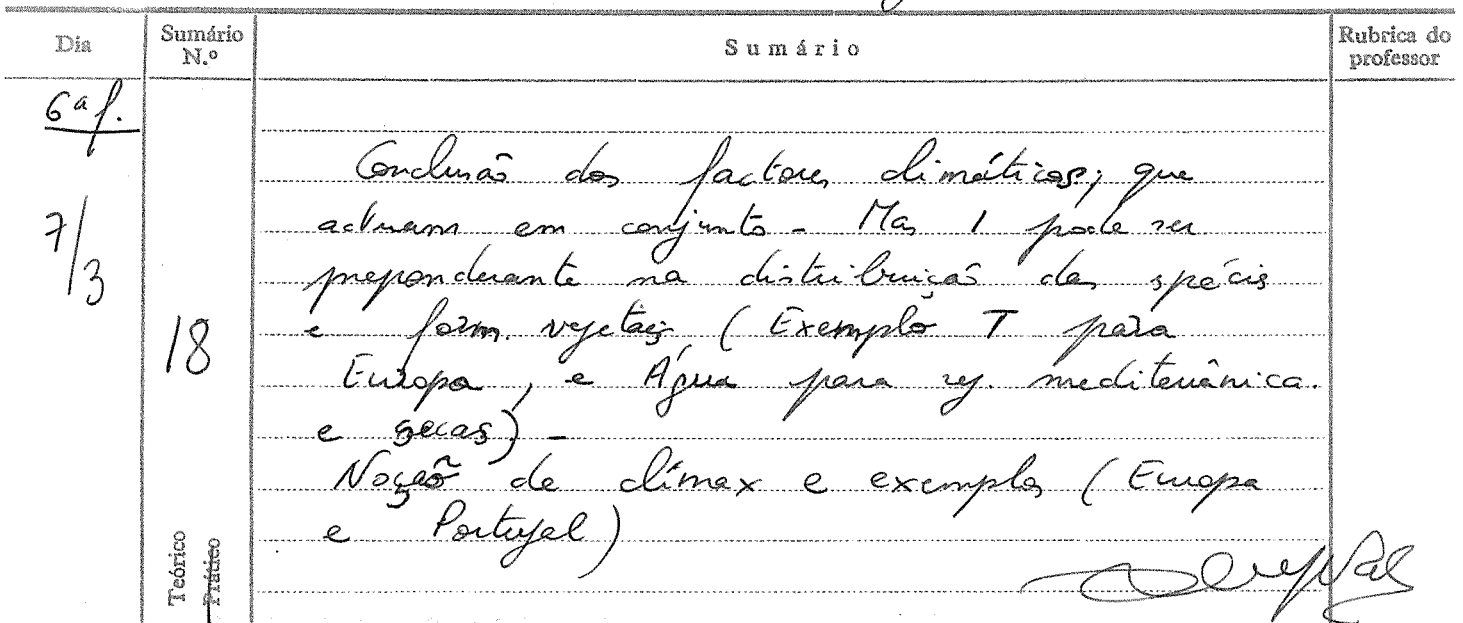 Dia Sumário N.º Sumário Rubrica do professor
6ª f.
Conclusão dos factores climáticos, que
7/3 actuam em conjunto - Mas 1 pode ser
preponderante na distribuição das spécis
18 e form. vegetais (Exemplo T para
Europa, e Água para reg. mediterrânica.
e secas) -
Noção de clímax e exemplos (Europa
e Portugal)
Teórico
Prático